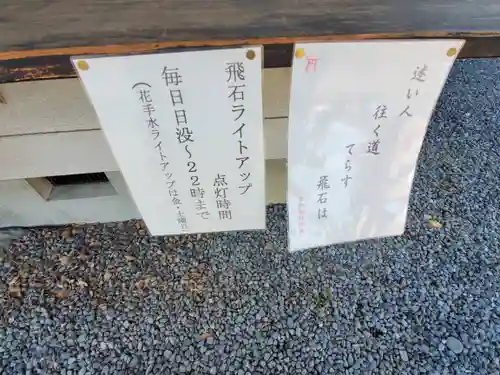 飛石ライトアップ
点灯時間
毎日日没～22時まで
（花手水ライトアップは金・土曜日
迷い人
往く道
てらす
飛石は